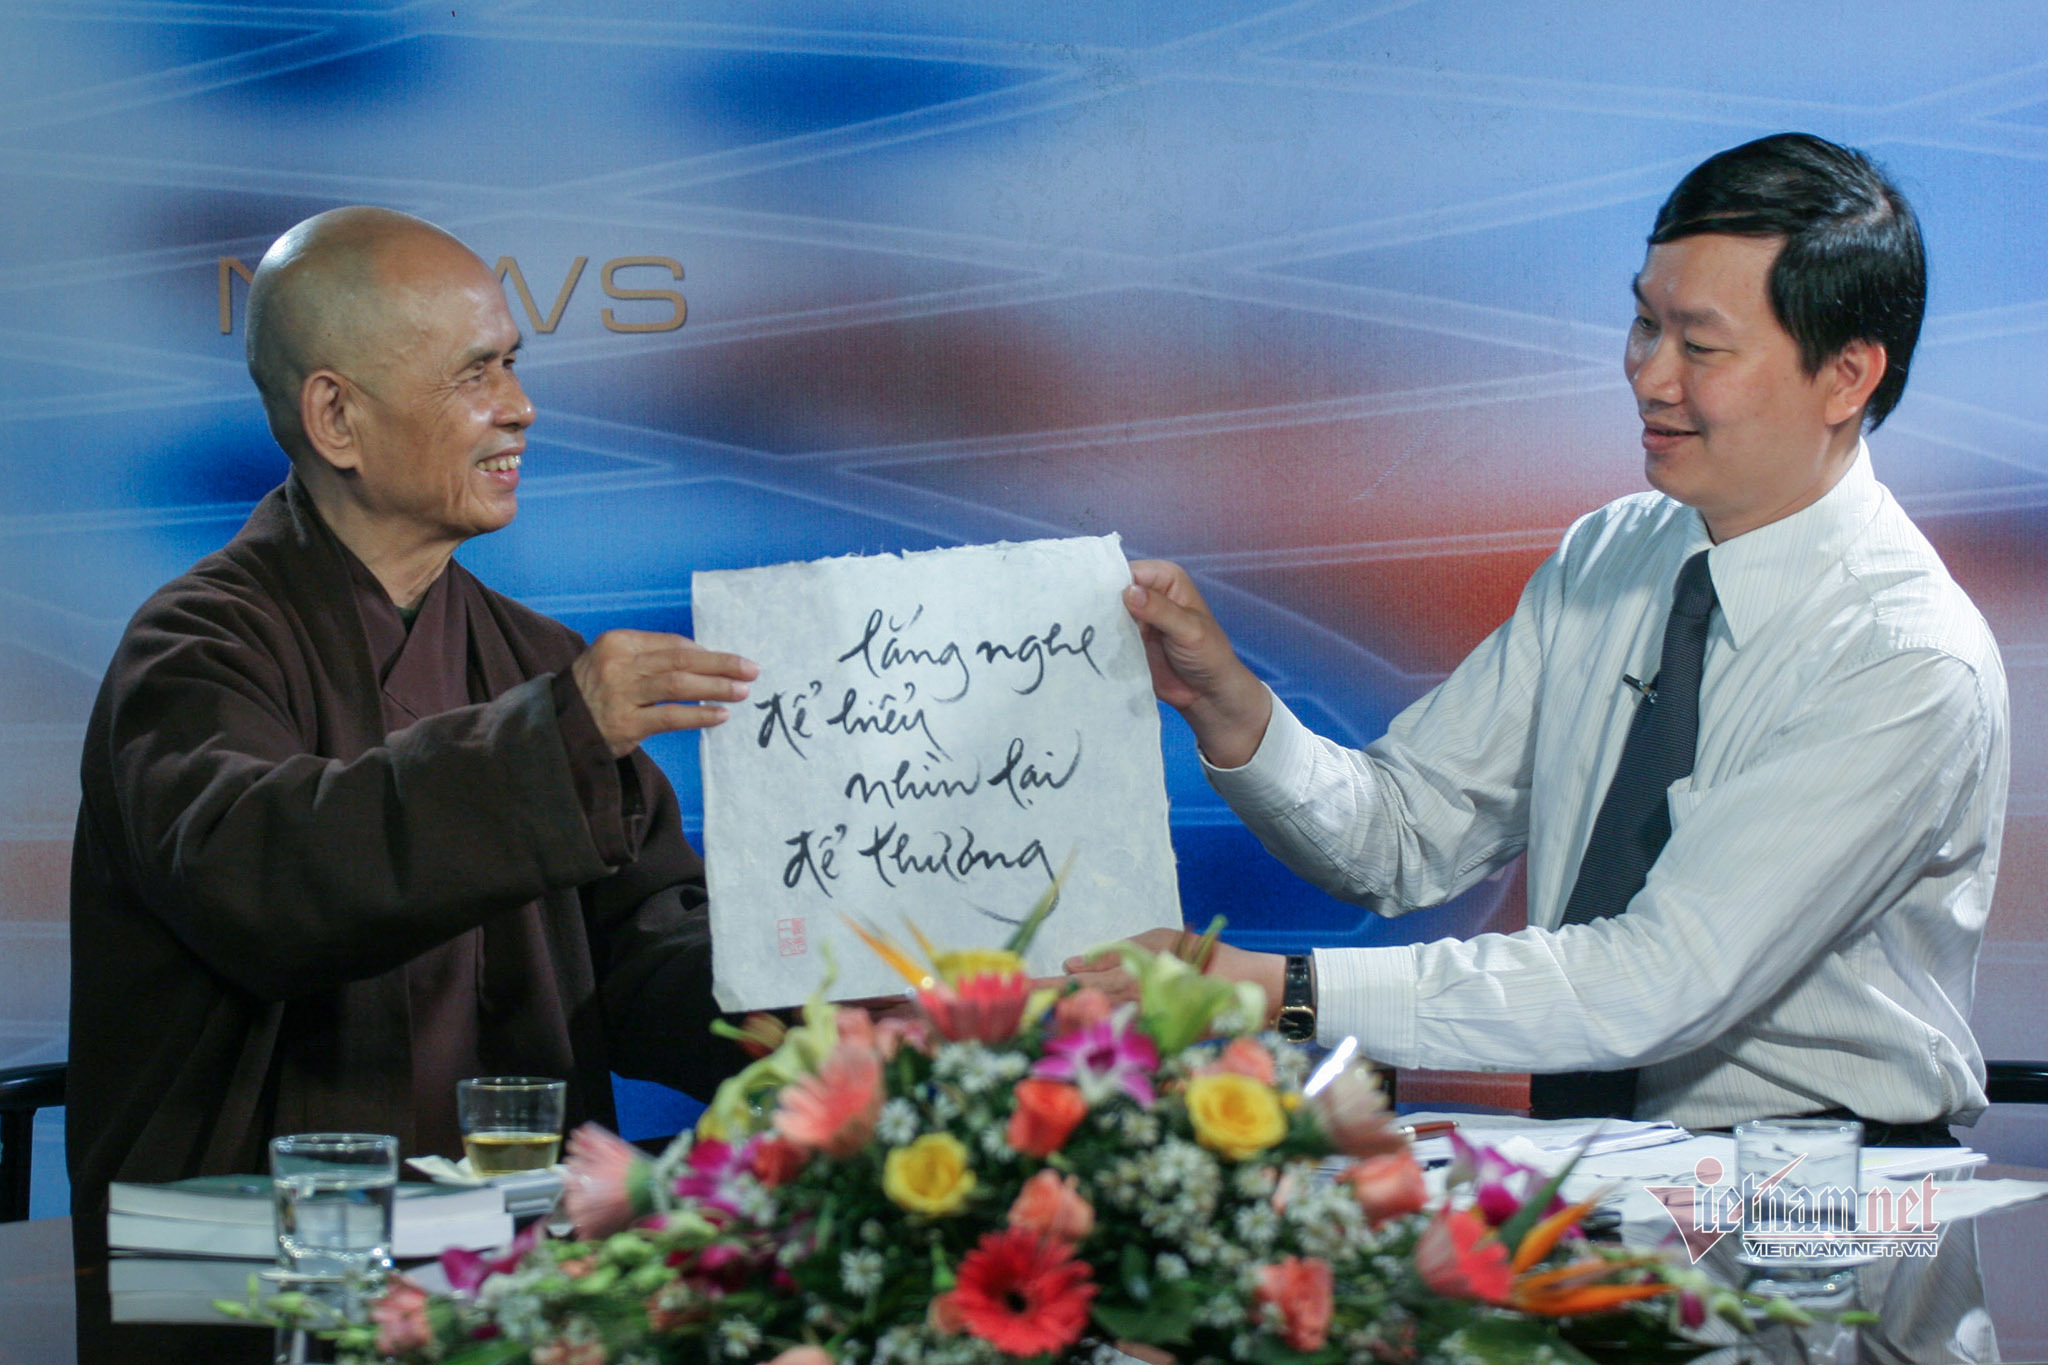 NEWS
lắng nghe
để hiểu
nhìn lại
để thương
Vietnamnet
VIETNAMNET.VN